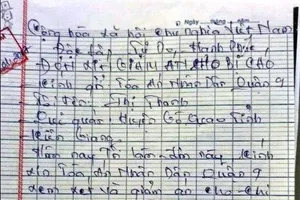 Ngày tháng năm
Cộng hòa xã hội chủ nghĩa Việt Nam
Độc lập Tự Do Hạnh Phúc
ĐƠN XIN GIẢM ÁN CHO BỊ CÁO
Kính gởi Tòa Án Nhân Dân Quận 9
Tôi tên Thị Thanh
Quê quán Huyện Gò Quao Tỉnh
Kiên Giang.
Hôm nay Tôi làm đơn này kính
xin Tòa Án Nhân Dân Quận 9
xem xét và giảm án cho chị